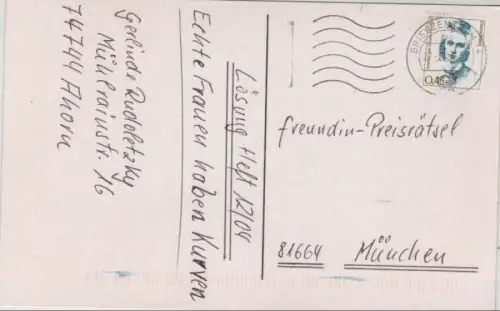 Gerlinde Rudoletzky
Mühlrainstr. 16
74744 Ahorn
Echte Frauen haben Kurven
Lösung Heft 12/04
freundin-Preisrätsel
81664 München
BRIEFZEN
0,45